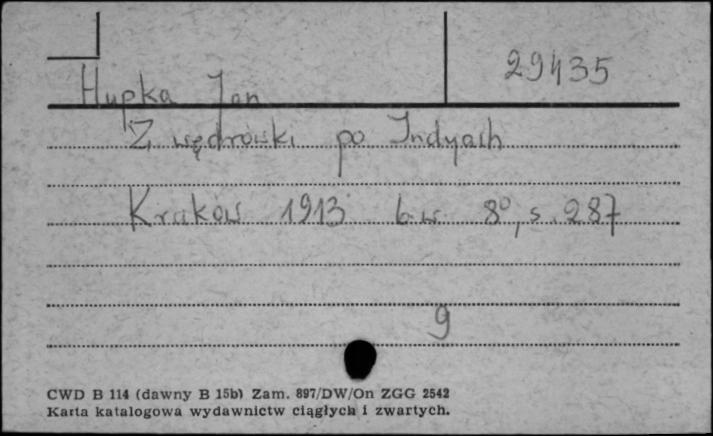 29435
Hupka Jan
Z wędrówki po Indyach
Kraków 1913 b.w. 8°, s. 287
9
CWD B 114 (dawny B 15b) Zam. 897/DW/On ZGG 2542
Karta katalogowa wydawnictw ciągłych i zwartych.